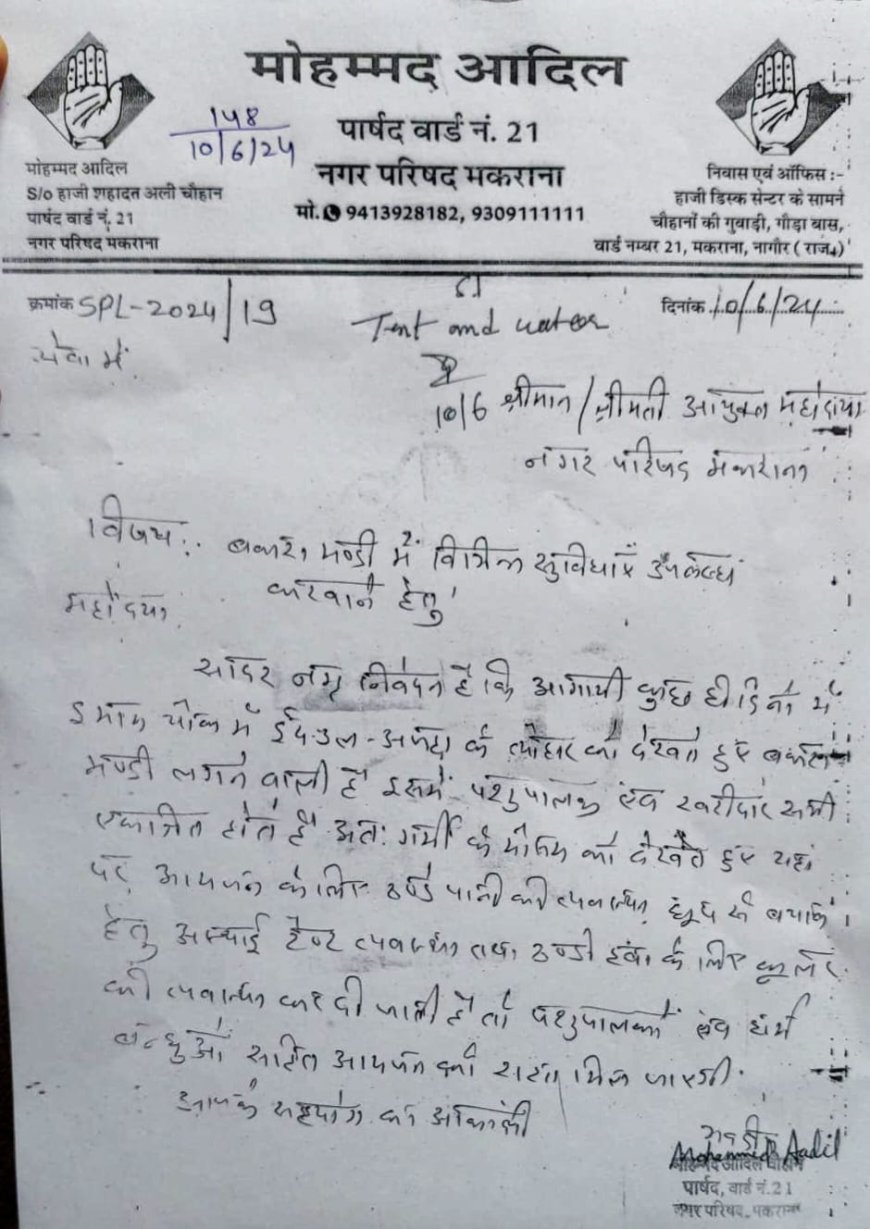 मोहम्मद आदिल
पार्षद वार्ड नं. 21
नगर परिषद मकराना
मो. 9413928182, 9309111111
148
10/6/24
मोहम्मद आदिल
S/o हाजी शहादत अली चौहान
पार्षद वार्ड नं. 21
नगर परिषद मकराना
निवास एवं ऑफिस :-
हाजी डिस्क सेन्टर के सामने
चौहानों की गुवाड़ी, गौड़ा बास,
वार्ड नम्बर 21, मकराना, नागौर (राज.)
क्रमांक SPL-2024/19
दिनांक 10/6/24
Tent and water
10/6
सेवा में
श्रीमान/श्रीमती आयुक्त महोदया
नगर परिषद मकराना
विषय:- बकरा मण्डी में विभिन्न सुविधाएं उपलब्ध
करवाने हेतु।
महोदया
सादर नम्र निवेदन है कि आगामी कुछ ही दिनों में
इमाम चौक में ईद-उल-अजहा के त्योहार को देखते हुए बकरा
मण्डी लगने वाली है इसमें पशुपालक एवं खरीदार सभी
एकत्रित होते है अतः गर्मी के मौसम को देखते हुए यहां
पर आमजन के लिए ठण्डे पानी की व्यवस्था, धूप से बचाने
हेतु अस्थाई टेण्ट व्यवस्था तथा ठण्डी हवा के लिए कूलर
की व्यवस्था कर दी जाती है तो पशुपालकों एवं धर्म
बन्धुओं सहित आमजन को राहत मिल जाएगी.
आपके सहयोग का आकांक्षी
Mohammed Aadil
मोहम्मद आदिल चौहान
पार्षद, वार्ड नं. 21
नगर परिषद, मकराना